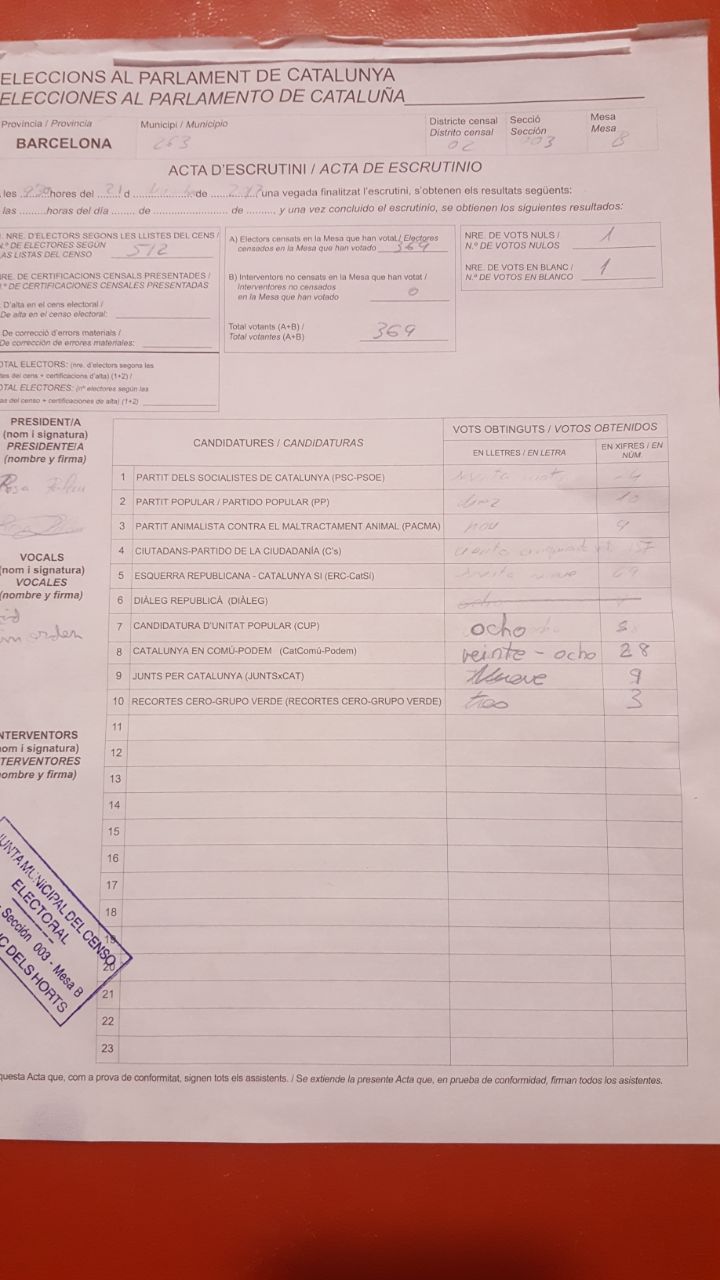 ELECCIONS AL PARLAMENT DE CATALUNYA
ELECCIONES AL PARLAMENTO DE CATALUÑA
Provincia / Provincia
BARCELONA
Municipi / Municipio
263
Districte censal
Distrito censal
02
Secció
Sección
003
Mesa
Mesa
B
ACTA D'ESCRUTINI / ACTA DE ESCRUTINIO
les hores del 21 d de una vegada finalitzat l'escrutini, s'obtenen els resultats següents:
las ........horas del día ....... de ........................ de ........., y una vez concluido el escrutinio, se obtienen los siguientes resultados:
NRE. D'ELECTORS SEGONS LES LLISTES DEL CENS /
N.º DE ELECTORES SEGÚN
AS LISTAS DEL CENSO 512
NRE. DE CERTIFICACIONS CENSALS PRESENTADES /
º DE CERTIFICACIONES CENSALES PRESENTADAS
D'alta en el cens electoral /
De alta en el censo electoral:
De correcció d'errors materials /
De corrección de errores materiales:
OTAL ELECTORS: (nre. d'electors segons les
tes del cens + certificacions d'alta) (1+2) /
OTAL ELECTORES: (nº electores según las
as del censo + certificaciones de alta) (1+2)
A) Electors censats en la Mesa que han votat / Electores
censados en la Mesa que han votado 369
B) Interventors no censats en la Mesa que han votat /
Interventores no censados
en la Mesa que han votado 0
Total votants (A+B) /
Total votantes (A+B) 369
NRE. DE VOTS NULS /
N.º DE VOTOS NULOS 1
NRE. DE VOTS EN BLANC /
N.º DE VOTOS EN BLANCO 1
PRESIDENT/A
(nom i signatura)
PRESIDENTE/A
(nombre y firma)
Rosa
VOCALS
(nom i signatura)
VOCALES
(nombre y firma)
NTERVENTORS
om i signatura)
TERVENTORES
ombre y firma)
CANDIDATURES / CANDIDATURAS
VOTS OBTINGUTS / VOTOS OBTENIDOS
EN LLETRES / EN LETRA
EN XIFRES / EN
NÚM.
1 PARTIT DELS SOCIALISTES DE CATALUNYA (PSC-PSOE)
2 PARTIT POPULAR / PARTIDO POPULAR (PP) diez 10
3 PARTIT ANIMALISTA CONTRA EL MALTRACTAMENT ANIMAL (PACMA) nou 9
4 CIUTADANS-PARTIDO DE LA CIUDADANÍA (C's) 157
5 ESQUERRA REPUBLICANA - CATALUNYA SI (ERC-CatSí) 69
6 DIÀLEG REPUBLICÀ (DIÀLEG)
7 CANDIDATURA D'UNITAT POPULAR (CUP) ocho 8
8 CATALUNYA EN COMÚ-PODEM (CatComú-Podem) veinte - ocho 28
9 JUNTS PER CATALUNYA (JUNTSxCAT) Nueve 9
10 RECORTES CERO-GRUPO VERDE (RECORTES CERO-GRUPO VERDE) tres 3
11
12
13
14
15
16
17
18
19
20
21
22
23
JUNTA MUNICIPAL DEL CENSO
ELECTORAL
Sección 003 - Mesa B
DELS HORTS
questa Acta que, com a prova de conformitat, signen tots els assistents. / Se extiende la presente Acta que, en prueba de conformidad, firman todos los asistentes.